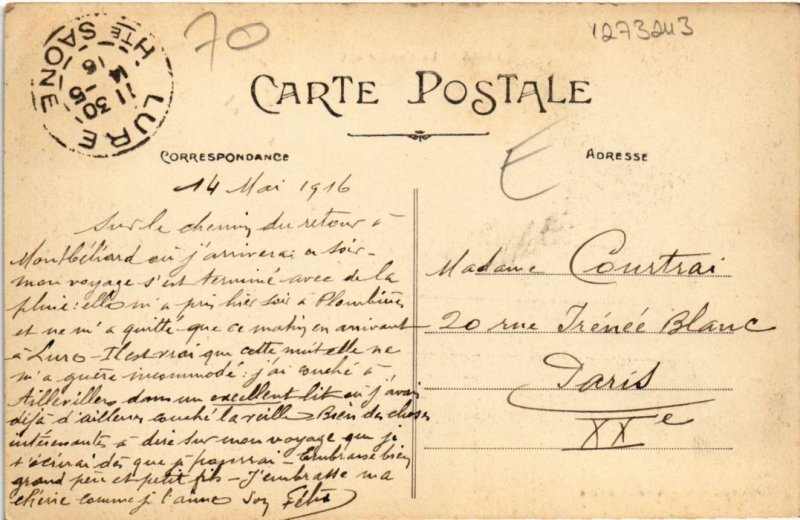 70
1273243
LURE
Hte SAONE
11 30
14 -5
16
CARTE POSTALE
E
CORRESPONDANCE
ADRESSE
14 Mai 1916
Sur le chemin du retour à
Montbéliard où j'arriverai ce soir -
mon voyage s'est terminé avec de la
pluie : elle m'a pris hier soir à Plombières
et ne m'a quitté que ce matin en arrivant
à Lure - Il est vrai que cette nuit elle ne
m'a guère incommodé : j'ai couché à
Aillevillers dans un excellent lit où j'avais
déjà d'ailleurs couché la veille - Bien des choses
intéressantes à dire sur mon voyage que je
t'écrirai dès que je pourrai - Embrasse bien
grand père et petit fils - J'embrasse ma
chérie comme je l'aime Son Félix
Madame Courtrai
20 rue Irénée Blanc
Paris
XXe